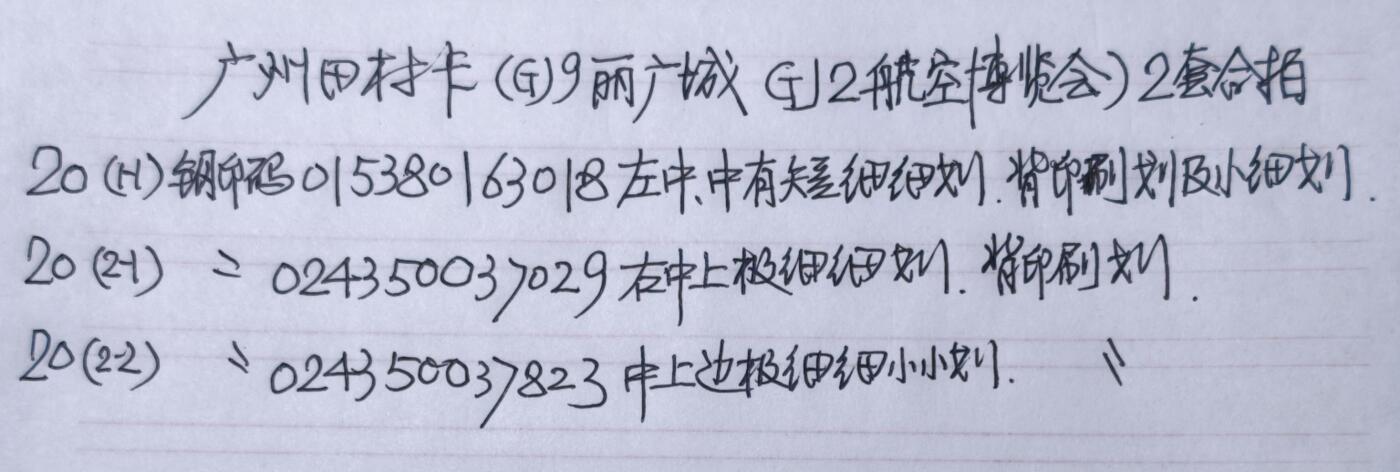 广州田村卡(G)9丽广城 (G)2航空博览会)2套合拍
20(1-1)钢印码015380163018左中、中有短细细划.背印刷划及小细划.
20(2-1) 〃 024350037029右中上极细细划.背印刷划.
20(2-2) 〃 024350037823中上边极细细小小划. 〃